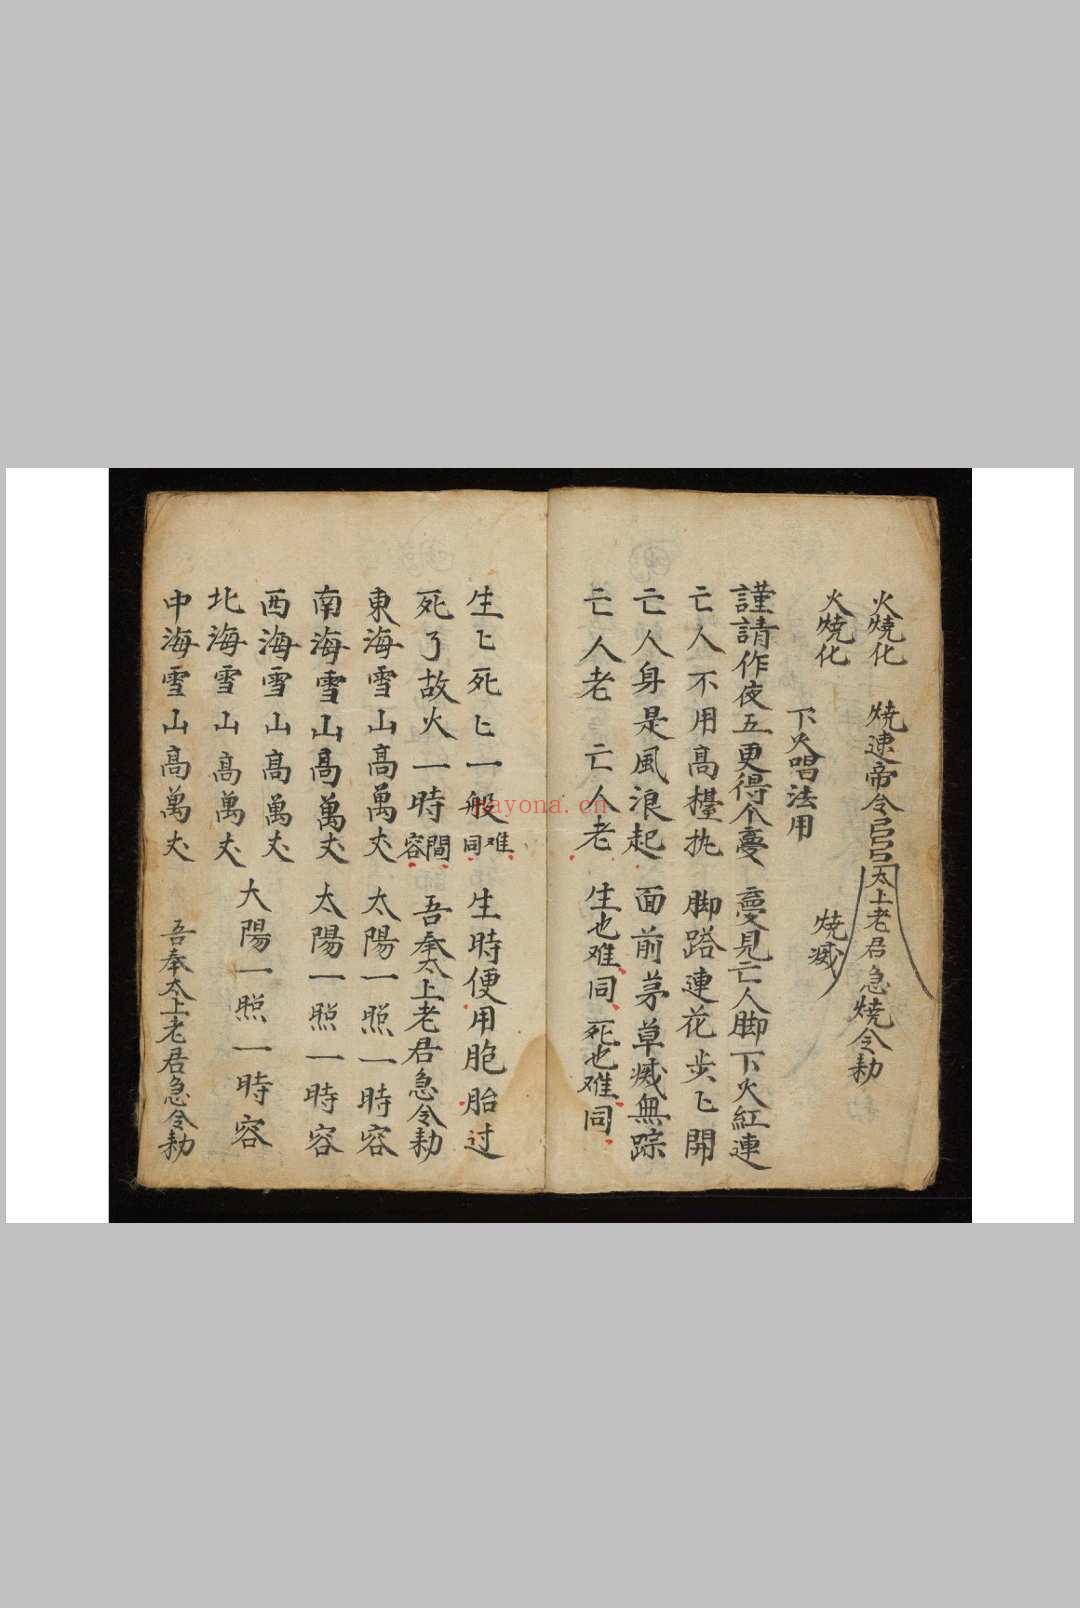 火燒化
燒速帝令
太上老君急燒令勅
火燒化
燒滅
下火唱法用
謹請作夜五更得个夣 夣見亡人脚下火紅連
亡人不用高檯 脚踏連花步〻開
亡人身是風浪起 面前茅草滅無踪
亡人老 亡人老 生也难同 死也难同
生〻死〻一般难同 生時便用胞胎过
死了故火一時間容 吾奉太上老君急令勅
東海雪山高萬丈 太陽一照一時容
南海雪山高萬丈 太陽一照一時容
西海雪山高萬丈
大陽一照一時容
北海雪山高萬丈
中海雪山高萬丈 吾奉太上老君急令勅
nayona.cn